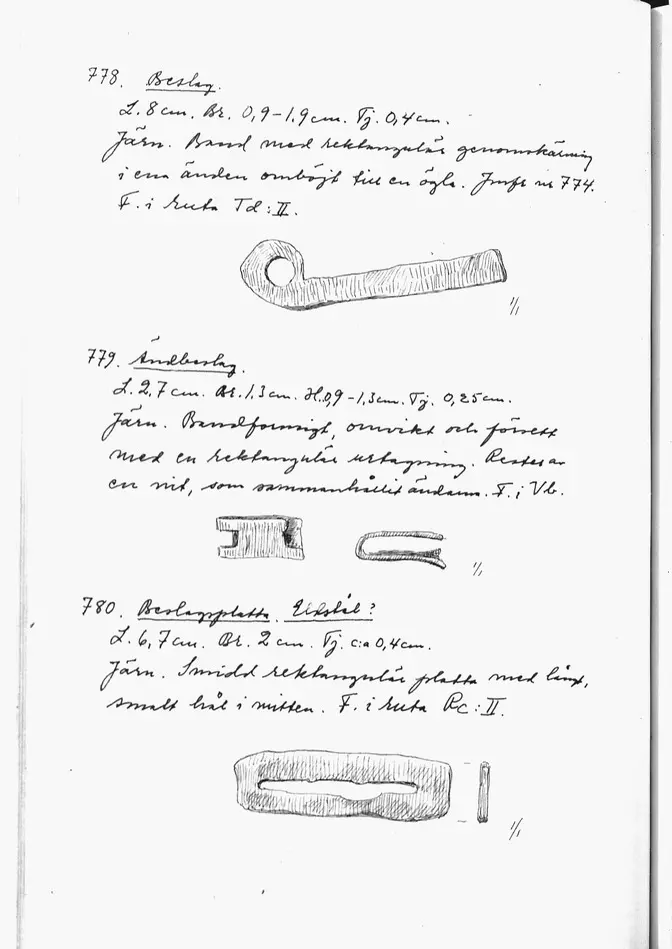 778. Beslag.
L. 8 cm. Br. 0,9-1,9 cm. Tj. 0,4 cm.
Järn. Band med rektangulär genomskärning
i ena änden omböjt till en ögla. Jmfr nr 774.
F. i ruta Td:II.
1/1
779. Ändbeslag.
L. 2,7 cm. Br. 1,3 cm. H. 0,9-1,3 cm. Tj. 0,25 cm.
Järn. Bandformigt, omvikt och försett
med en rektangulär urtagning. Rester av
en nit, som sammanhållit ändarna. F. i Vb.
1/1
780. Beslagsplatta. Eldstål?
L. 6,7 cm. Br. 2 cm. Tj. c:a 0,4 cm.
Järn. Smidd rektangulär platta med långt,
smalt hål i mitten. F. i ruta Rc:II.
1/1